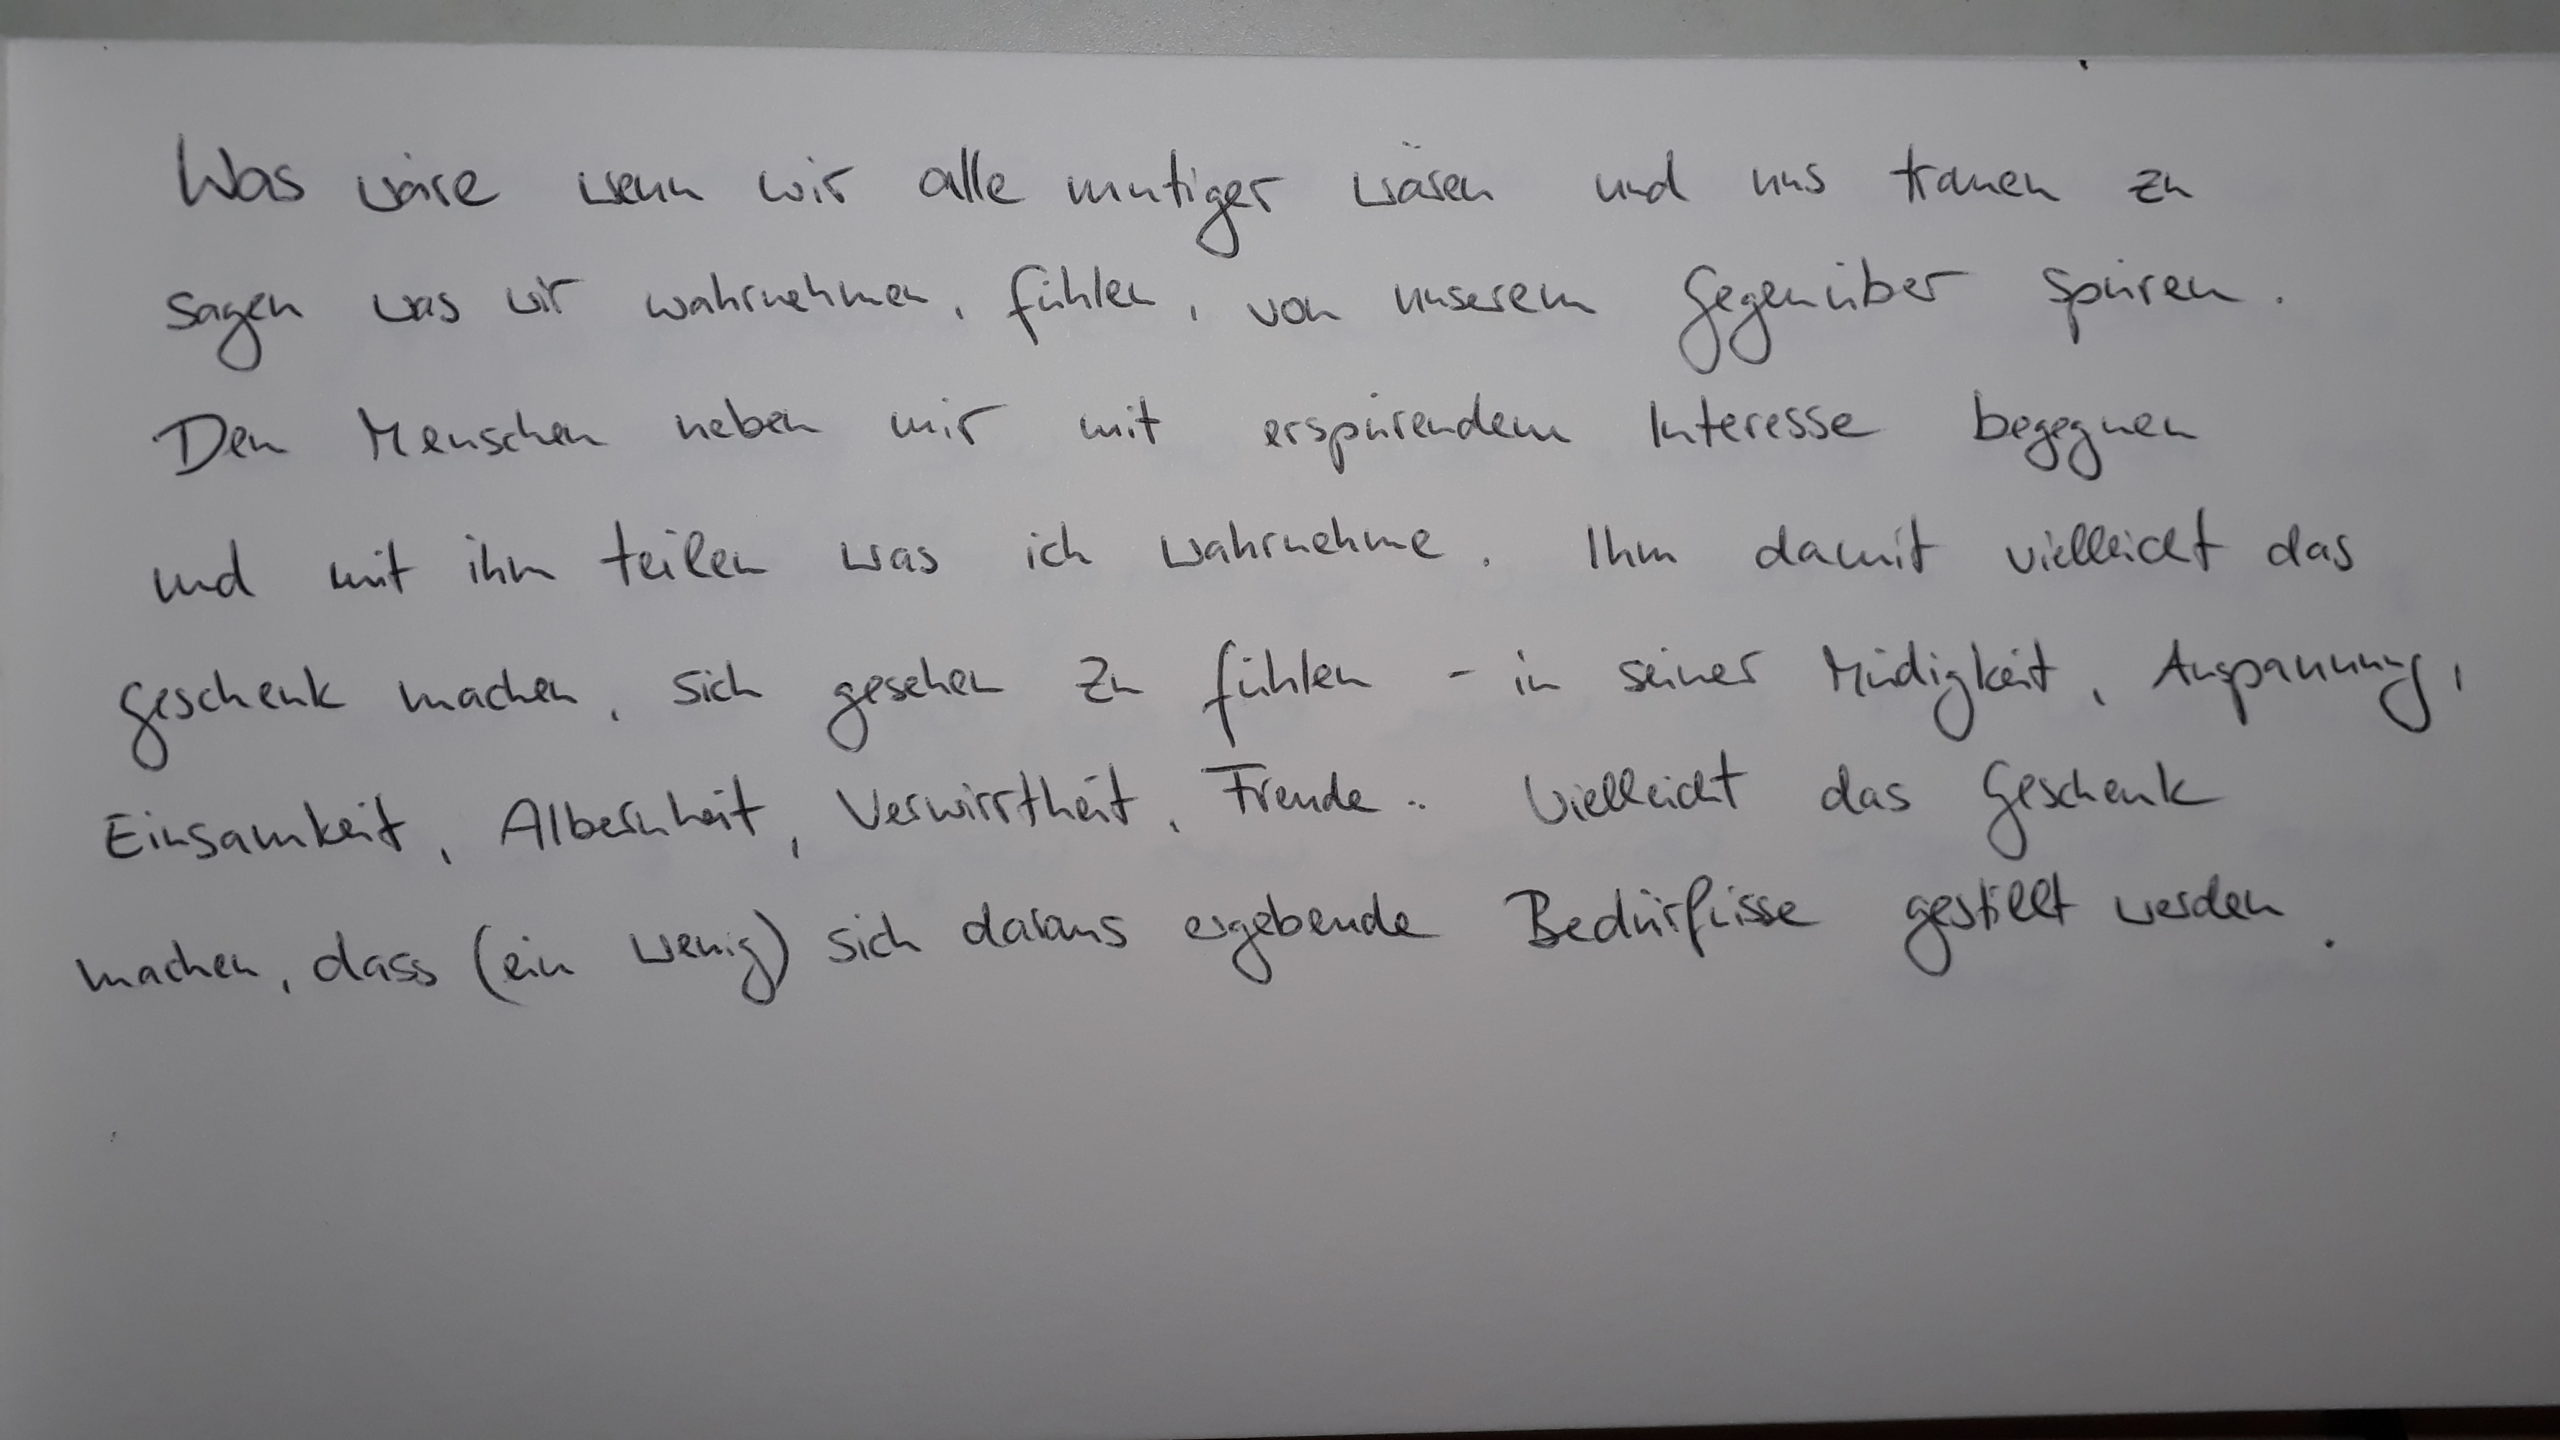 Was wäre wenn wir alle mutiger wären und uns trauen zu
sagen was wir wahrnehmen, fühlen, von unserem Gegenüber spüren.
Den Menschen neben mir mit erspürendem Interesse begegnen
und mit ihm teilen was ich wahrnehme. Ihm damit vielleicht das
Geschenk machen, sich gesehen zu fühlen - in seiner Müdigkeit, Anspannung,
Einsamkeit, Albernheit, Verwirrtheit, Freude.. Vielleicht das Geschenk
machen, dass (ein wenig) sich daraus ergebende Bedürfnisse gestillt werden.